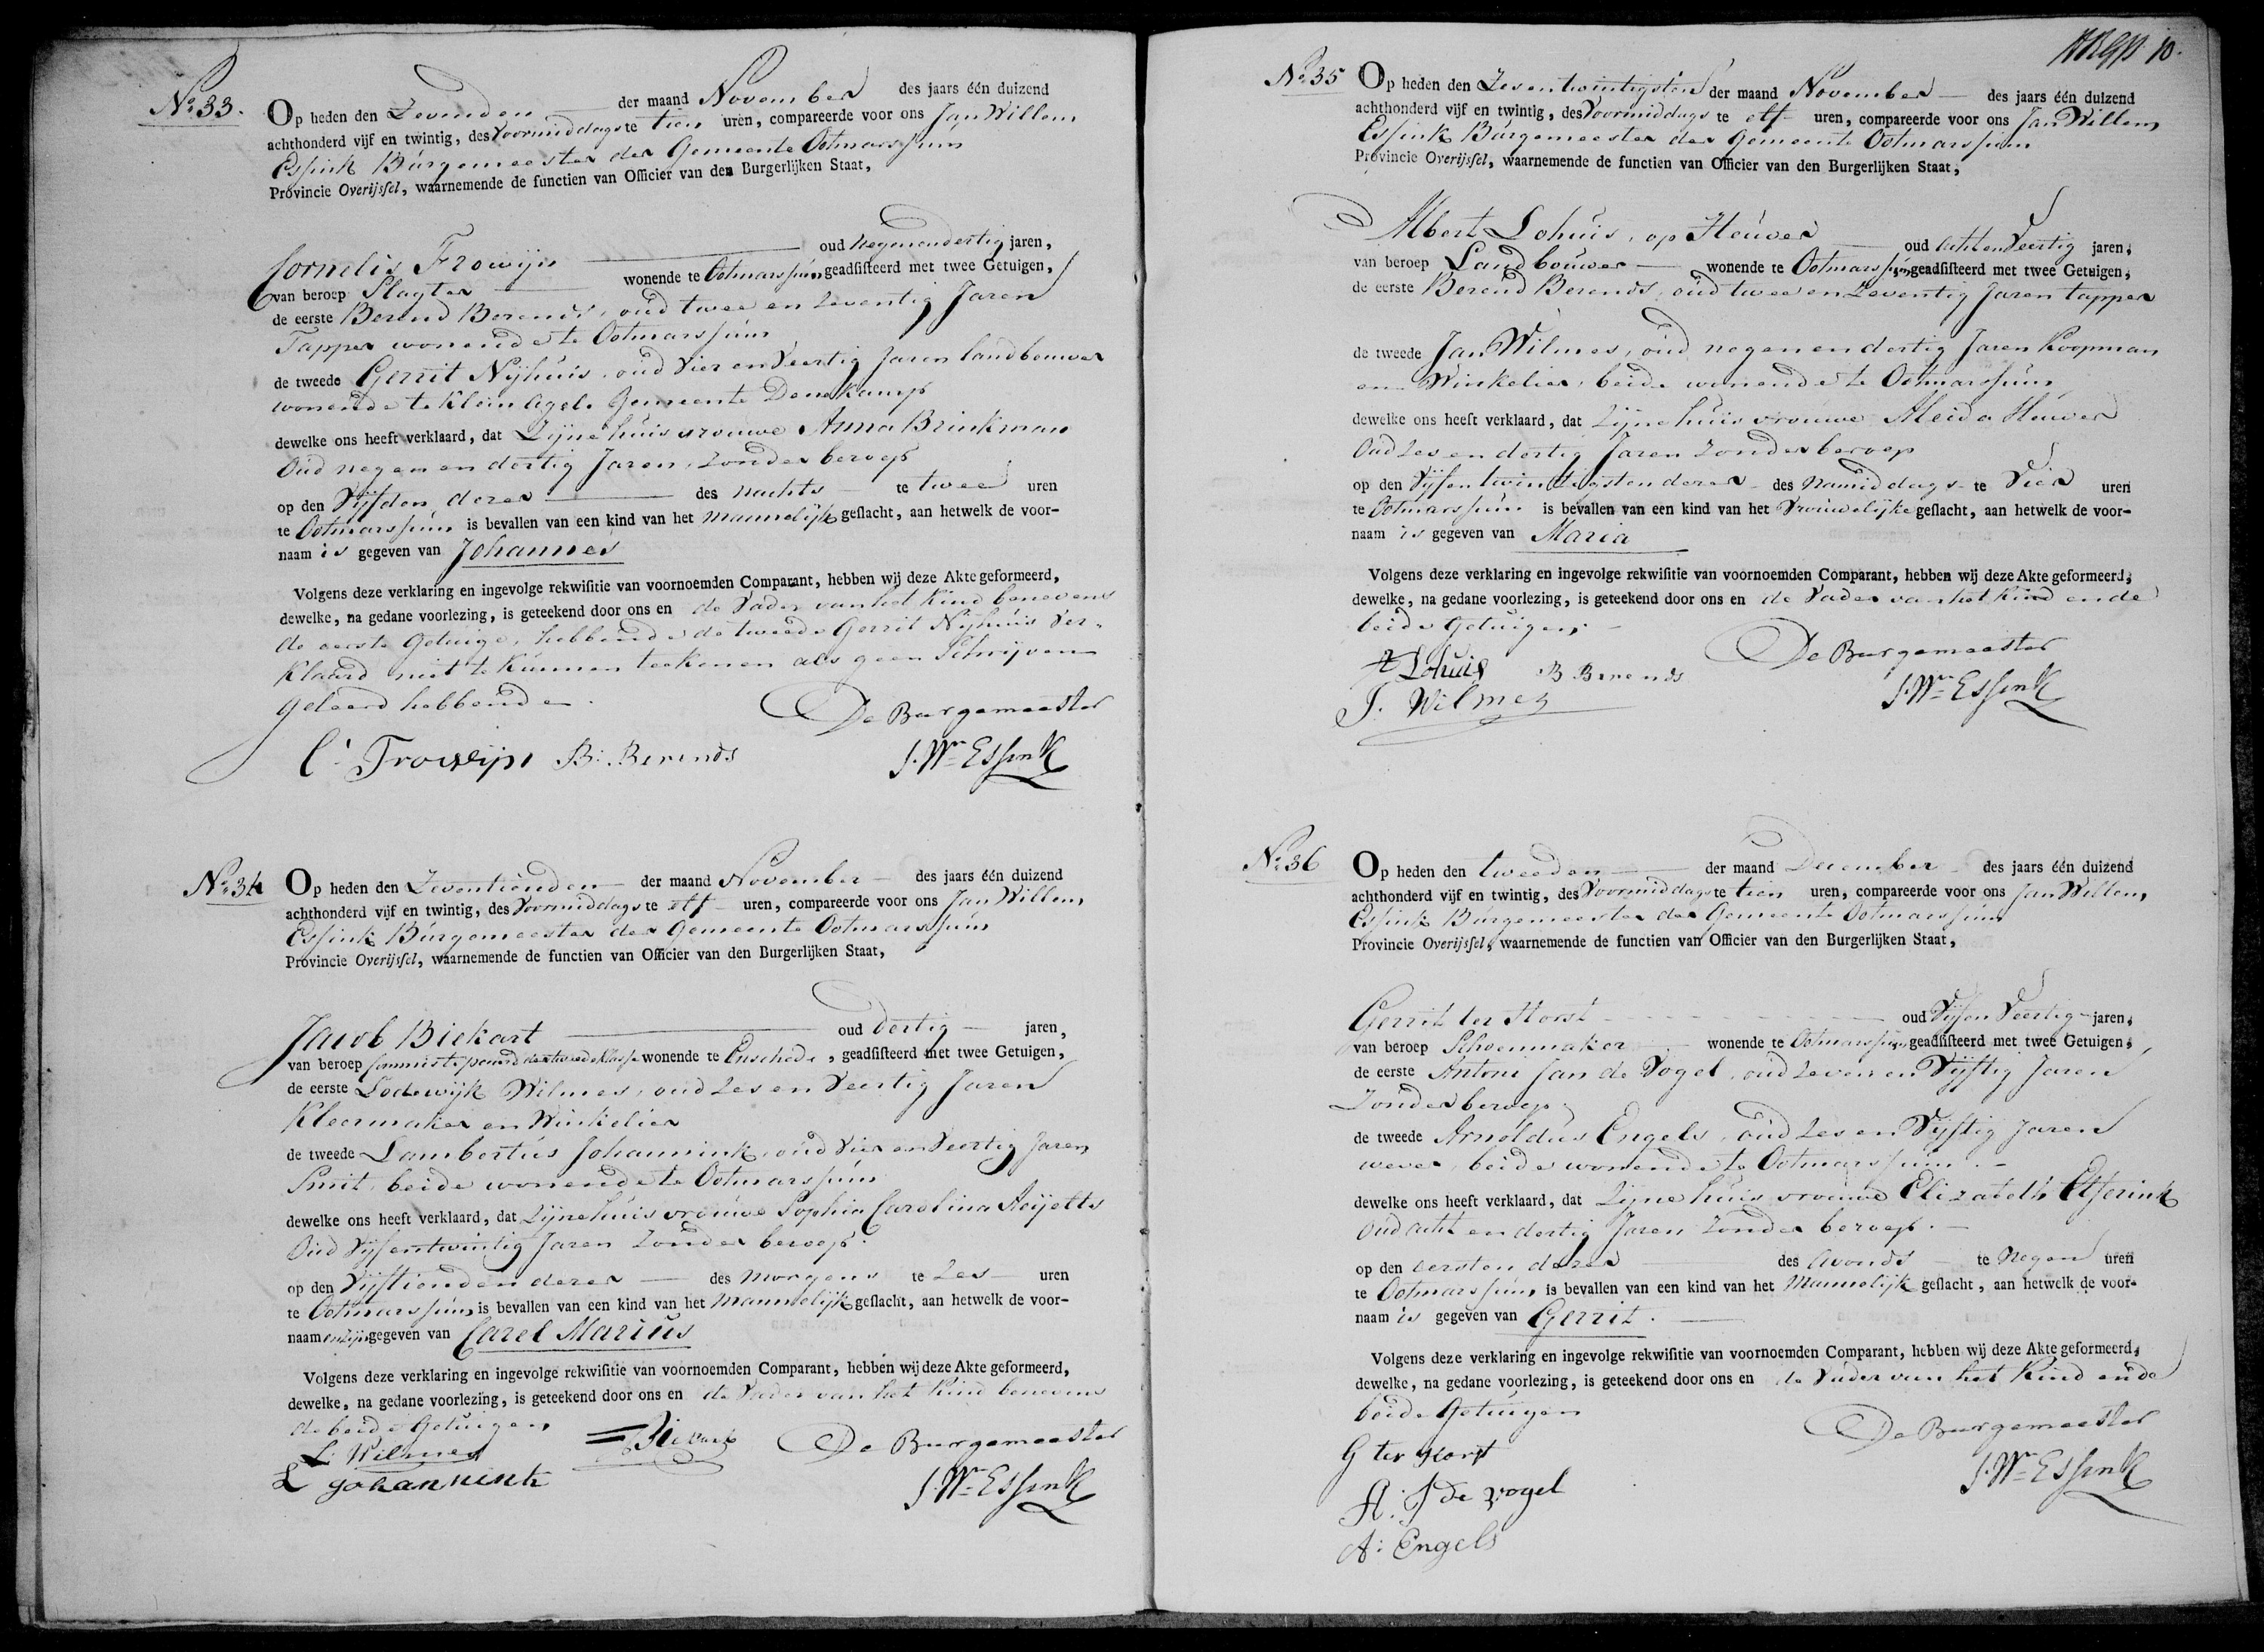 No. 33.
Op heden den Zevenden der maand November des jaars één duizend
achthonderd vijf en twintig, des Voormiddags te tien uren, compareerde voor ons Jan Willem
Essink Burgemeester der Gemeente Ootmarssum
Provincie Overijssel, waarnemende de functien van Officier van den Burgerlijken Staat,
Cornelis Frowijn oud Negenendertig jaren,
van beroep Slagter wonende te Ootmarssum geadsisteerd met twee Getuigen,
de eerste Berend Berends, oud twee en Zeventig Jaren
Tapper wonende te Ootmarssum
de tweede Gerrit Nijhuis, oud Vier en Veertig Jaren landbouwer
wonende te Klein Agele Gemeente Denekamp
dewelke ons heeft verklaard, dat Zijne huisvrouwe Anna Brinkman
Oud negen en dertig Jaren, Zonder beroep
op den Vijfden dezer des nachts te twee uren
te Ootmarssum is bevallen van een kind van het mannelijk geslacht, aan hetwelk de voor-
naam is gegeven van Johannes
Volgens deze verklaring en ingevolge rekwisitie van voornoemden Comparant, hebben wij deze Akte geformeerd,
dewelke, na gedane voorlezing, is geteekend door ons en de Vader van het Kind benevens
de eerste Getuige, hebbende de tweede Gerrit Nijhuis Ver-
klaard niet te kunnen teekenen als geen Schrijven
geleerd hebbende.
De Burgemeester
C. Frowijn B. Berends J. Wm Essink
No. 34
Op heden den Zeventienden der maand November des jaars één duizend
achthonderd vijf en twintig, des Voormiddags te elf uren, compareerde voor ons Jan Willem
Essink Burgemeester der Gemeente Ootmarssum
Provincie Overijssel, waarnemende de functien van Officier van den Burgerlijken Staat,
Jacob Biekart oud dertig jaren,
van beroep Commies te paard der tweede Klasse wonende te Enschede, geadsisteerd met twee Getuigen,
de eerste Lodewijk Wilmes, oud Zes en Veertig Jaren
Kleermaker en Winkelier
de tweede Lambertus Johannink, oud Vier en Veertig Jaren
Smit, beide wonende te Ootmarssum
dewelke ons heeft verklaard, dat Zijne huisvrouwe Sophia Carolina
Oud Vijfentwintig Jaren Zonder beroep.
op den Vijftienden dezer des morgens te Zes uren
te Ootmarssum is bevallen van een kind van het mannelijk geslacht, aan hetwelk de voor-
naamen zijn gegeven van Carel Marius
Volgens deze verklaring en ingevolge rekwisitie van voornoemden Comparant, hebben wij deze Akte geformeerd,
dewelke, na gedane voorlezing, is geteekend door ons en de Vader van het Kind benevens
de beide Getuigen
L. Wilmes Biekart De Burgemeester
L Johannink J. Wm Essink
10.
No. 35
Op heden den Zesentwintigsten der maand November des jaars één duizend
achthonderd vijf en twintig, des Voormiddags te elf uren, compareerde voor ons Jan Willem
Essink Burgemeester der Gemeente Ootmarssum
Provincie Overijssel, waarnemende de functien van Officier van den Burgerlijken Staat,
Albert Lohuis, op Heuver oud acht en Veertig jaren,
van beroep Landbouwer wonende te Ootmarssum geadsisteerd met twee Getuigen,
de eerste Berend Berends, oud twee en Zeventig Jaren tapper
de tweede Jan Wilmes, oud negen en dertig Jaren Koopman
en Winkelier, beide wonende te Ootmarssum
dewelke ons heeft verklaard, dat Zijne huisvrouwe Aleida Heuver
Oud Zes en dertig Jaren Zonder beroep
op den Vijfentwintigsten dezer des namiddags te Vier uren
te Ootmarssum is bevallen van een kind van het Vrouwelijke geslacht, aan hetwelk de voor-
naam is gegeven van Maria
Volgens deze verklaring en ingevolge rekwisitie van voornoemden Comparant, hebben wij deze Akte geformeerd,
dewelke, na gedane voorlezing, is geteekend door ons en de Vader van het Kind en de
beide Getuigen.
A Lohuis B Berends De Burgemeester
J. Wilmes J. Wm Essink
No. 36
Op heden den tweeden der maand December des jaars één duizend
achthonderd vijf en twintig, des Voormiddags te tien uren, compareerde voor ons Jan Willem
Essink Burgemeester der Gemeente Ootmarssum
Provincie Overijssel, waarnemende de functien van Officier van den Burgerlijken Staat,
Gerrit ter Horst oud Vijf en Veertig jaren,
van beroep Schoenmaker wonende te Ootmarssum geadsisteerd met twee Getuigen,
de eerste Antoni Jan de Vogel, oud Zeven en Vijftig Jaren
Zonder beroep
de tweede Arnoldus Engels, oud Zes en Vijftig Jaren
wever, beide wonende te Ootmarssum.
dewelke ons heeft verklaard, dat Zijne huisvrouwe Elizabeth Elferink
Oud acht en dertig Jaren Zonder beroep.
op den eersten dezer des avonds te Negen uren
te Ootmarssum is bevallen van een kind van het Mannelijk geslacht, aan hetwelk de voor-
naam is gegeven van Gerrit.
Volgens deze verklaring en ingevolge rekwisitie van voornoemden Comparant, hebben wij deze Akte geformeerd,
dewelke, na gedane voorlezing, is geteekend door ons en de Vader van het Kind en de
beide Getuigen
De Burgemeester
G ter Horst
J. Wm Essink
A. J de Vogel
A: Engels